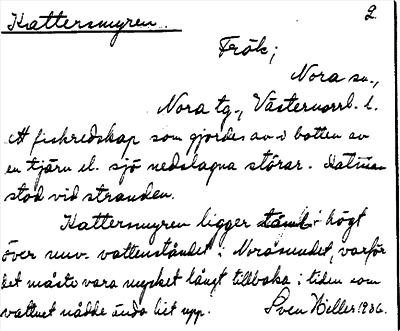 Kattersmyren. 2.
Frök;
Nora sn.,
Nora tg., Västernorrl. l.
ett fiskredskap som gjordes av i botten av
en tjärn el. sjö nedslagna störar.
stod vid stranden.
Kattersmyren ligger i högt
över nuv. vattenståndet i Norasundet, varför
det måste vara mycket långt tillbaka i tiden som
vattnet nådde ända hit upp. Sven Hiller 1936.